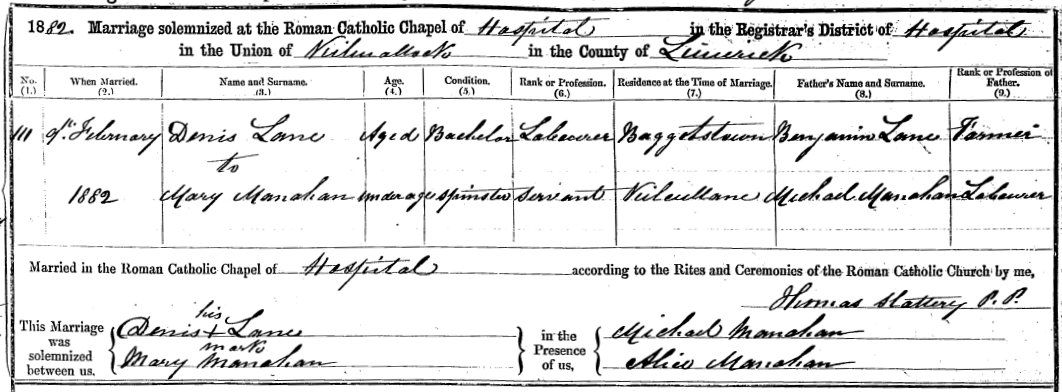 1882. Marriage solemnized at the Roman Catholic Chapel of Hospital in the Registrar's District of Hospital
in the Union of Kilmallock in the County of Limerick
No. (1.) When Married. (2.) Name and Surname. (3.) Age. (4.) Condition. (5.) Rank or Profession. (6.) Residence at the Time of Marriage. (7.) Father's Name and Surname. (8.) Rank or Profession of Father. (9.)
111 9th February Denis Lane Aged Bachelor Labourer Baggotstown Benjamin Lane Farmer
to
1882 Mary Manahan underage Spinster Servant Michael Manahan Labourer
Married in the Roman Catholic Chapel of Hospital according to the Rites and Ceremonies of the Roman Catholic Church by me,
Thomas Slattery P.P.
This Marriage was solemnized between us, Denis Lane his + mark
Mary Manahan
in the Presence of us, Michael Manahan
Alice Manahan